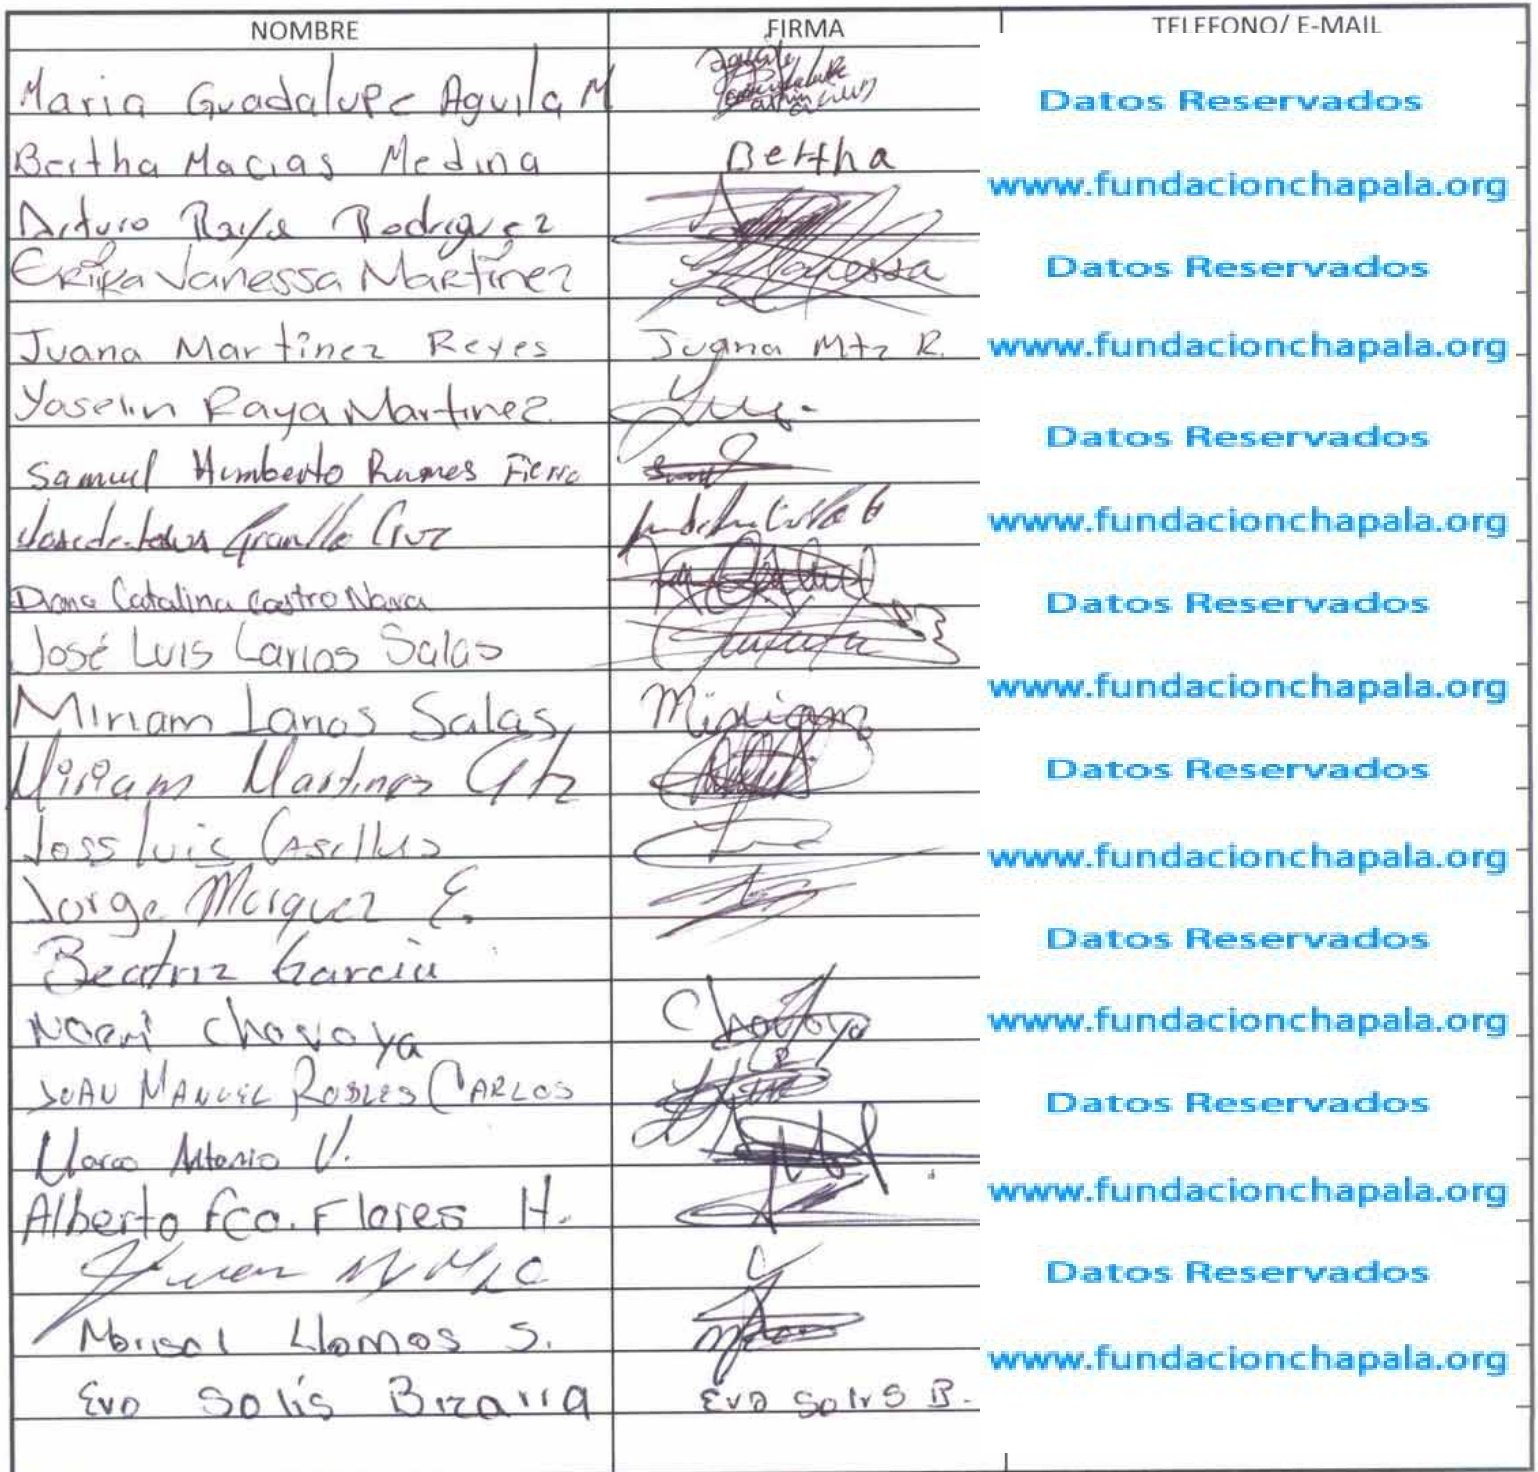 NOMBRE FIRMA TELEFONO/ E-MAIL
Maria Guadalupe Aguila M Datos Reservados
Bertha Macias Medina Bertha www.fundacionchapala.org
Arturo Raya Rodriguez
Erika Vanessa Martinez Vanessa Datos Reservados
Juana Martinez Reyes Juana Mtz R. www.fundacionchapala.org
Yoselin Raya Martinez Datos Reservados
Samuel Humberto Rames Fierro
Granillo Cruz www.fundacionchapala.org
Diana Catalina Castro Nava Datos Reservados
José Luis Larios Salas
Miriam Larios Salas Miriam www.fundacionchapala.org
Miriam Martinez Gtz Datos Reservados
Jose Luis Casillas www.fundacionchapala.org
Jorge Marquez E.
Beatriz Garcia Datos Reservados
Noemi Chavoya Chavoya www.fundacionchapala.org
JUAN MANUEL ROBLES CARLOS Datos Reservados
Marco Antonio V.
Alberto Fco. Flores H. www.fundacionchapala.org
Datos Reservados
Marisol Llamas S. www.fundacionchapala.org
Eva Solis Bizarra Eva Solis B.